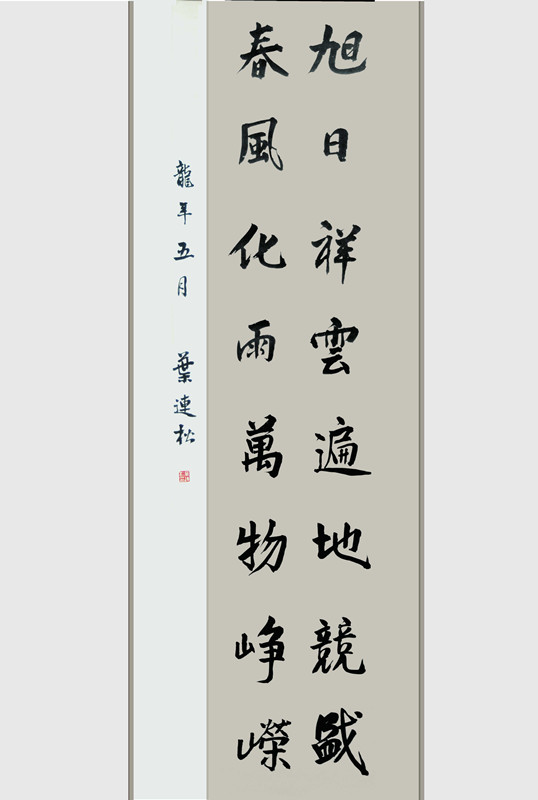 旭日祥雲遍地競盛
春風化雨萬物峥嶸
龍年五月 葉連松